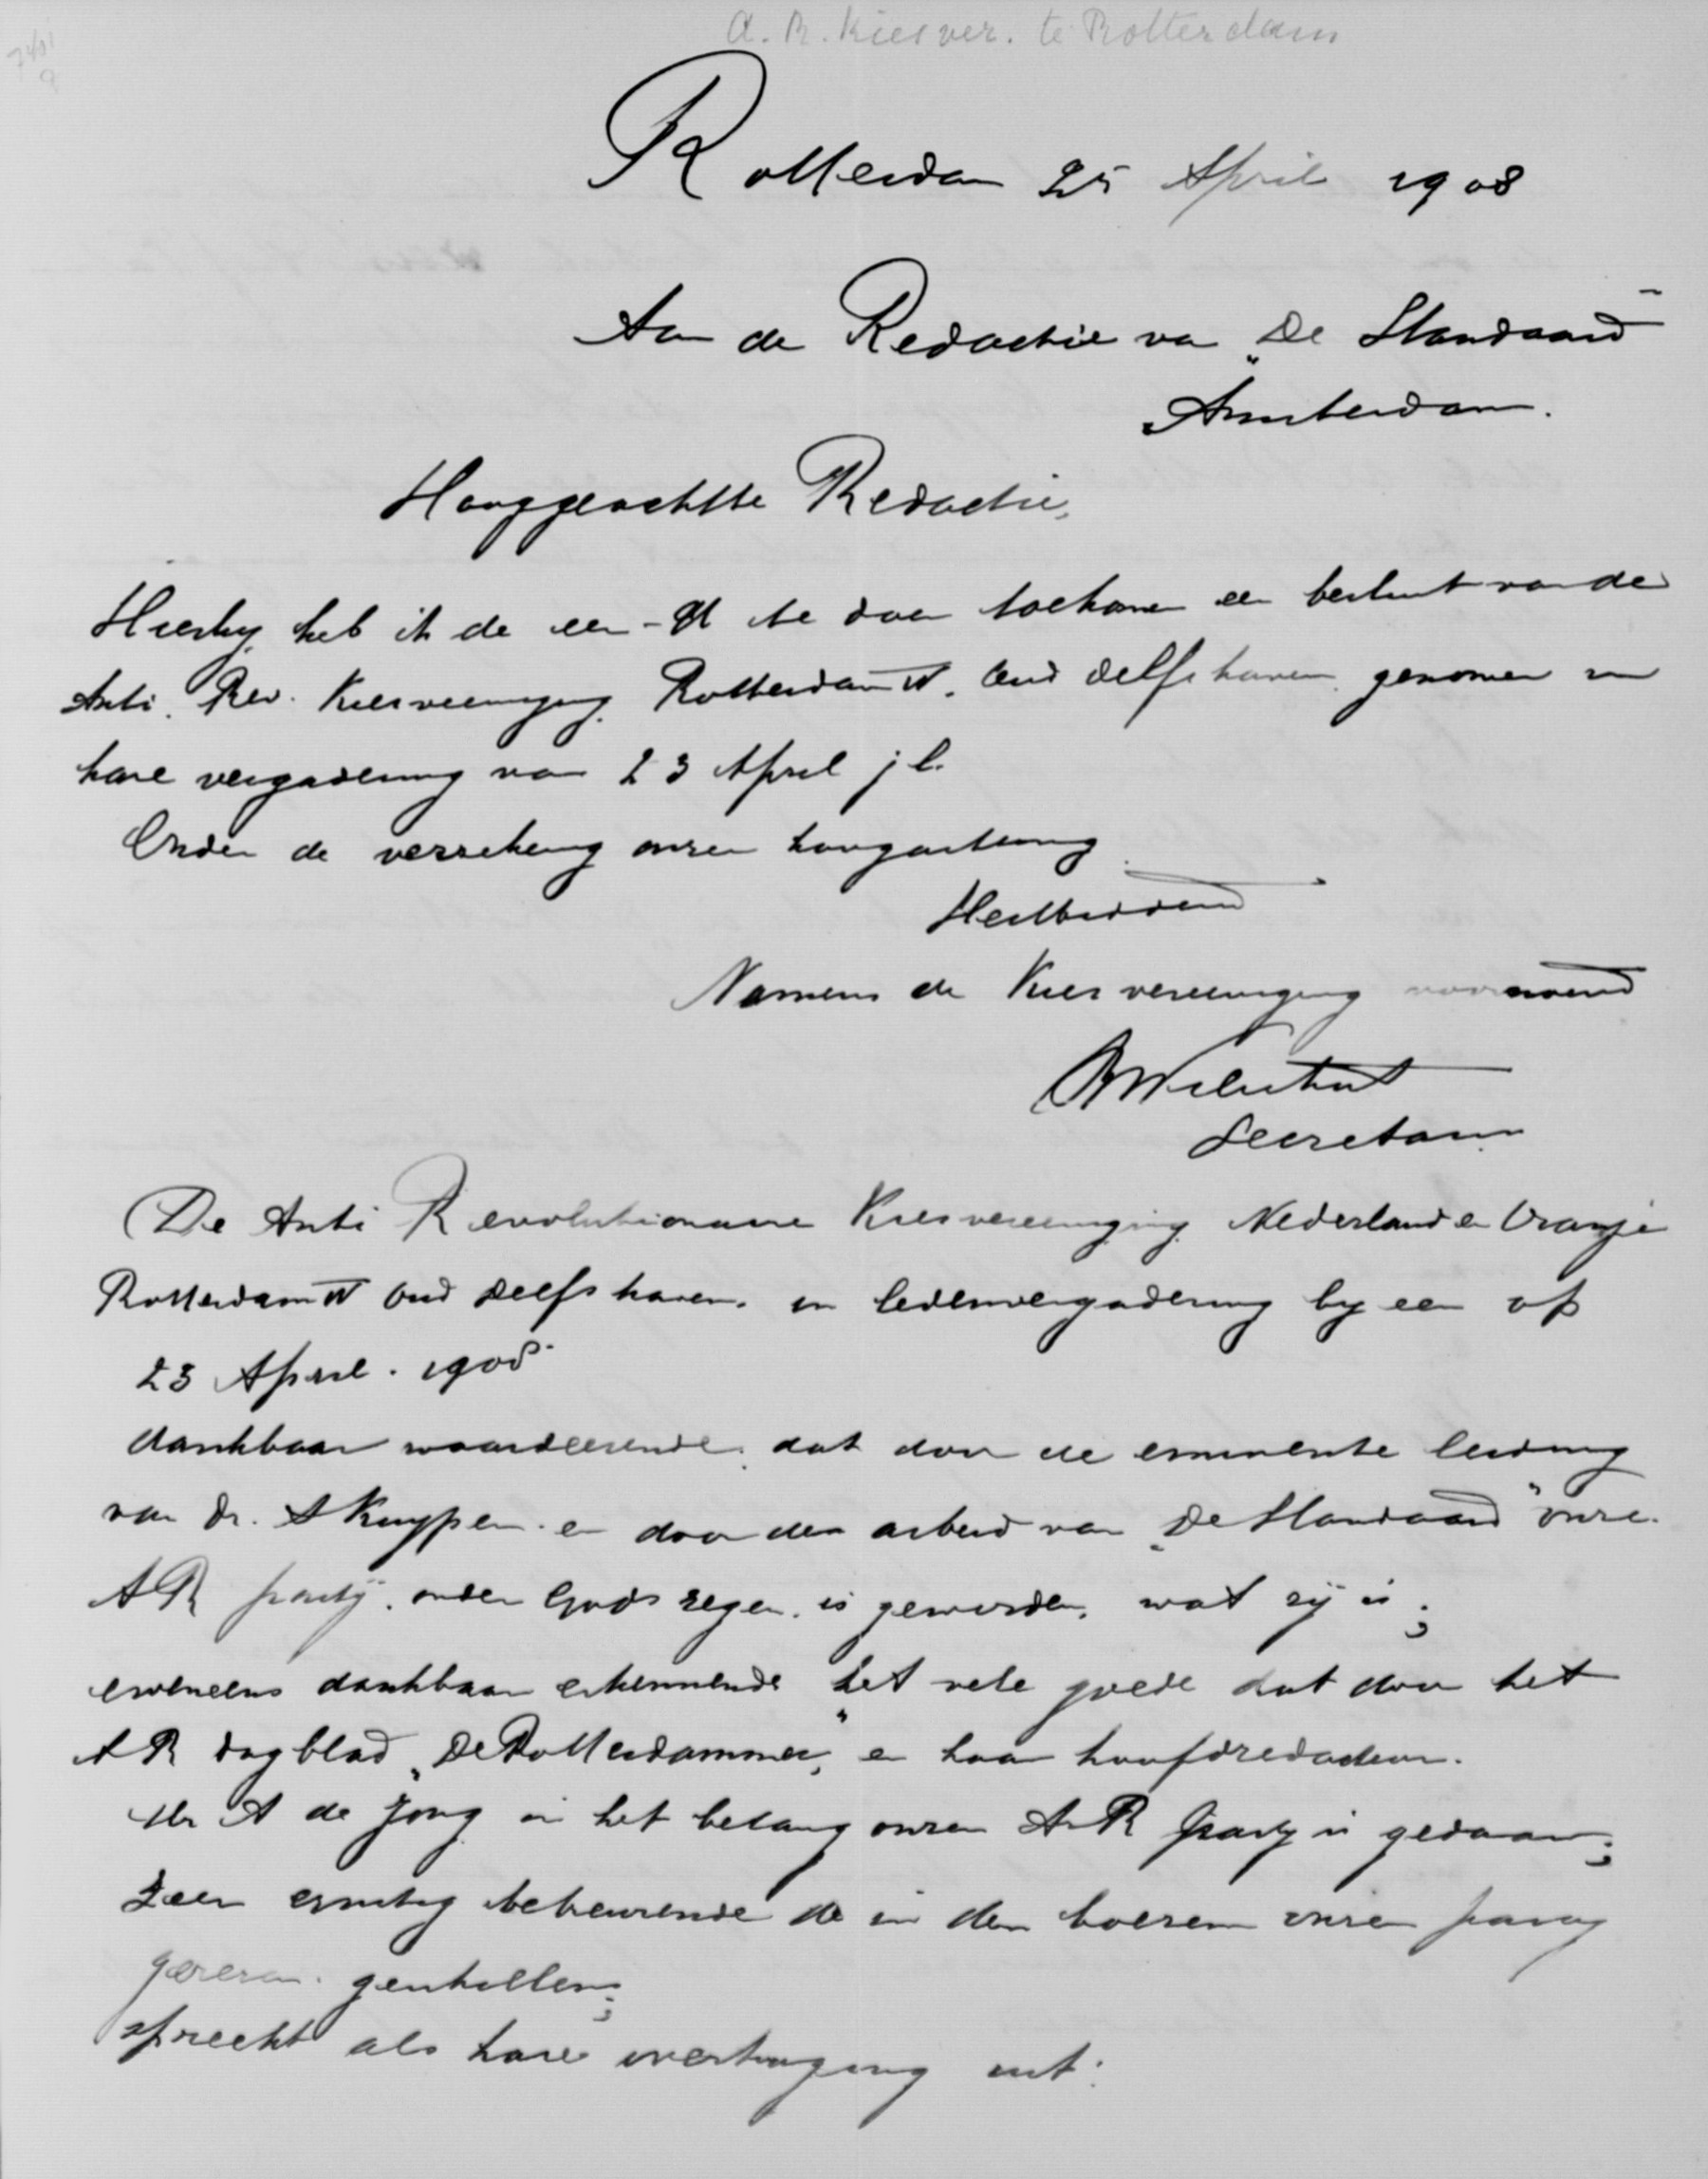 A. R. Kiesver. te Rotterdam
Rotterdam 25 April 1908
Aan de Redactie van „De Standaard"
Amsterdam.
Hooggeachtte Redactie,
Hierbij heb ik de eer U te doen toekomen een besluit van de
Anti. Rev. Kiesvereeniging Rotterdam IV. Oud Delfshaven genomen in
hare vergadering van 23 April jl.
Onder de verzekering onzer hoogachting
Heilbiddend
Namens de Kiesvereeniging voornoemd
Secretaris
De Anti Revolutionaire Kiesvereeniging Nederland en Oranje
Rotterdam IV Oud Delfshaven. in ledenvergadering bijeen op
23 April. 1908.
dankbaar waardeerende. dat door de eminente leiding
van Dr. A Kuyper. en door den arbeid van „De Standaard" onze
AR partij. onder Gods zegen. is geworden, wat zij is;
eveneens dankbaar erkennende het vele goede dat door het
AR dagblad „De Rotterdammer„ en haar hoofdredacteur.
Mr A de Jong in het belang onzer AR Partij is gedaan;
Zeer ernstig betreurende de in den boezem onzer partij
gerezen. geschillen;
spreekt als hare overtuiging uit: